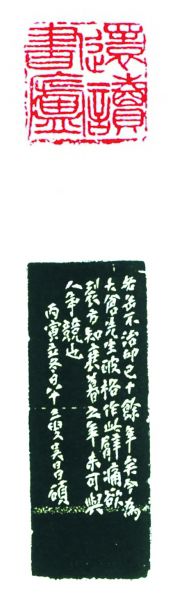 還讀
書廬
老缶不治印已十餘年矣今為
大倉先生破格作此臂痛欲
裂方知衰暮之年未可與
人爭競也
丙寅冬日八十三叟吳昌碩